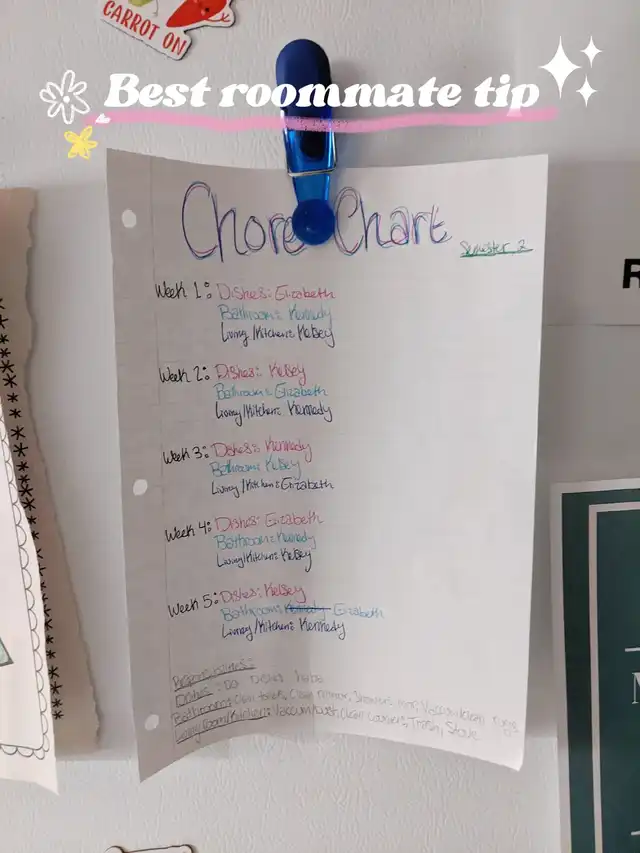 CARROT ON
Best roommate tip
Chore Chart
Semester 2
Week 1: Dishes: Elizabeth
Bathroom: Kennedy
Living/Kitchen: Kelsey
Week 2: Dishes: Kelsey
Bathroom: Elizabeth
Living/Kitchen: Kennedy
Week 3: Dishes: Kennedy
Bathroom: Kelsey
Living/Kitchen: Elizabeth
Week 4: Dishes: Elizabeth
Bathroom: Kennedy
Living/Kitchen: Kelsey
Week 5: Dishes: Kelsey
Bathroom: Kennedy Elizabeth
Living/Kitchen: Kennedy
Responsibilities:
Dishes: Do Dishes
Bathroom: Clean toilets, Clean mirror, Shower, mop, Vacuum/clean
Living Room/Kitchen: Vaccum/Swish, Clean Counters, Trash, Stove
R
M